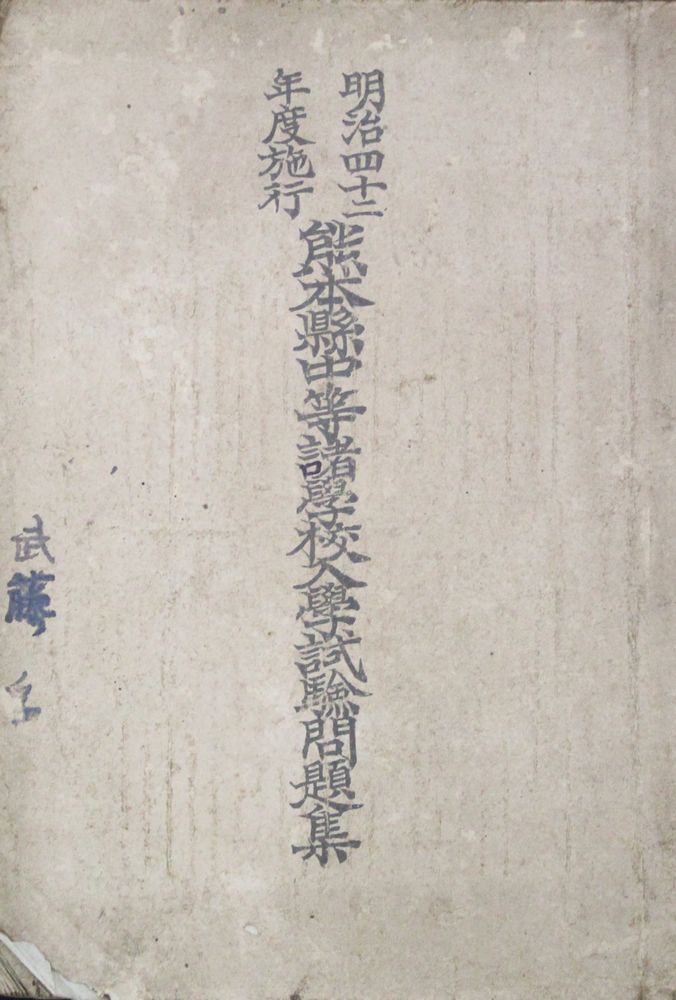 明治四十二
年度施行
熊本縣中等諸學校入學試驗問題集
武藤